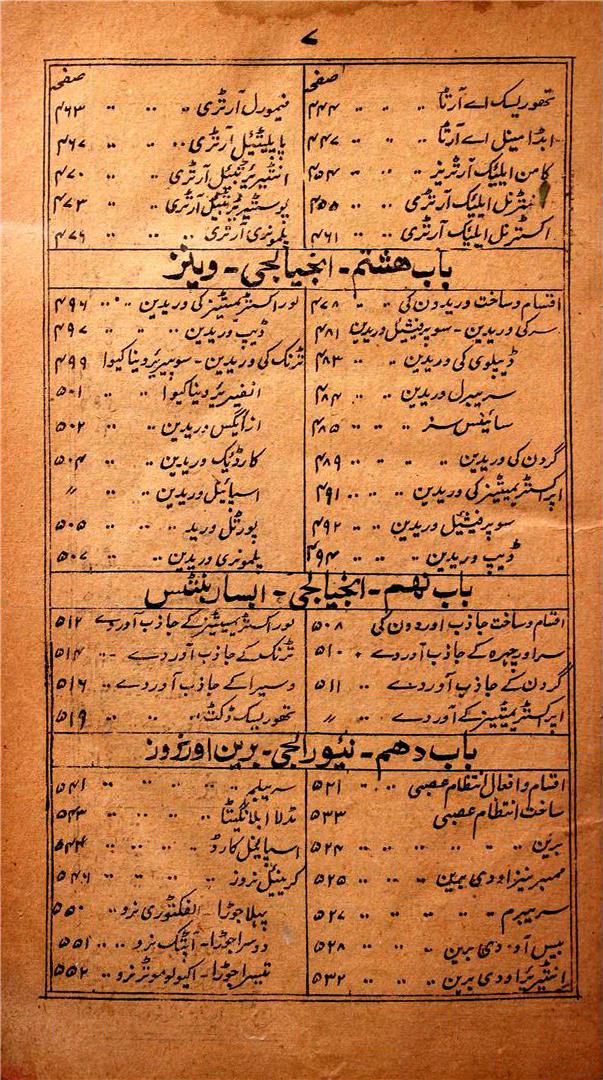 ۷
صفحہ
تھوریسک اے آرٹا ۴۴۴
ابڈامینل اے آرٹا ۴۴۷
کامن ایلیک آرٹریز ۴۵۴
انٹرنل ایلیک آرٹری ۴۵۵
اکسٹرنل ایلیک آرٹری ۴۶۱
صفحہ
فیمورل آرٹری ۴۶۳
پاپلیٹیل آرٹری ۴۶۷
انٹیریر ٹیبیل آرٹری ۴۷۰
پوسٹیریر ٹیبیل آرٹری ۴۷۳
پلمونری آرٹری ۴۷۶
باب ہشتم - انجیالجی - وینز
اقسام و ساخت وریدون کی ۴۷۸
سر کی وریدین - سوپرفیشیل وریدین ۴۸۱
ڈیپلوی کی وریدین ۴۸۳
سریبرل وریدین ۴۸۴
سائینس سز ۴۸۵
گردن کی وریدین ۴۸۹
اپر اکسٹریمیٹیز کی وریدین ۴۹۱
سوپرفیشیل وریدین ۴۹۲
ڈیپ وریدین ۴۹۴
لور اکسٹریمیٹیز کی وریدین ۴۹۶
ڈیپ وریدین ۴۹۷
ٹرنک کی وریدین - سوپیریر ویناکیوا ۴۹۹
انفیریر ویناکیوا ۵۰۱
ازایگس وریدین ۵۰۲
کارڈیک وریدین ۵۰۴
اسپائینل وریدین 〃
پورٹل ورید ۵۰۵
پلمونری وریدین ۵۰۷
باب نہم - انجیالجی - ابسار بنٹس
اقسام و ساخت جاذب اوردون کی ۵۰۸
سر اور چہرہ کے جاذب آوردے ۵۱۰
گردن کے جاذب آوردے ۵۱۱
اپر اکسٹریمیٹیز کے آوردے 〃
لور اکسٹریمیٹیز کے جاذب آوردے ۵۱۲
ٹرنک کے جاذب آوردے ۵۱۴
وسیرا کے جاذب آوردے ۵۱۶
تھوریسک ڈکٹ ۵۱۹
باب دہم - نیورالجی - برین اور نروز
اقسام و افعال انتظام عصبی ۵۲۱
ساخت انتظام عصبی ۵۳۳
برین ۵۲۴
ممبرینز او دی برین ۵۲۵
سریبرم ۵۲۷
بیس آو دی برین ۵۲۸
انٹیریر او دی برین ۵۳۲
سریبلم ۵۴۱
مڈلا ابلانگیٹا ۵۴۳
اسپائینل کارڈ ۵۴۴
کرینیل نروز ۵۴۶
پہلا جوڑا - الفکٹوری نرو ۵۵۰
دوسرا جوڑا - آپٹک نرو ۵۵۱
تیسرا جوڑا - اکیولوموٹر نرو ۵۵۲